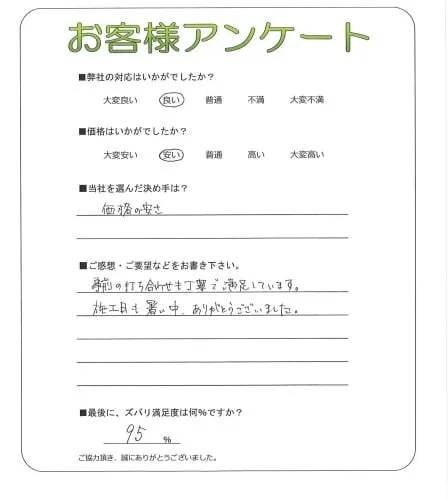 お客様アンケート
■弊社の対応はいかがでしたか?
大変良い 良い 普通 不満 大変不満
■価格はいかがでしたか?
大変安い 安い 普通 高い 大変高い
■当社を選んだ決め手は?
価格の安さ
■ご感想・ご要望などをお書き下さい。
事前の打ち合わせも丁寧で満足しています。
施工日も暑い中、ありがとうございました。
■最後に、ズバリ満足度は何%ですか?
95 %
ご協力頂き、誠にありがとうございました。